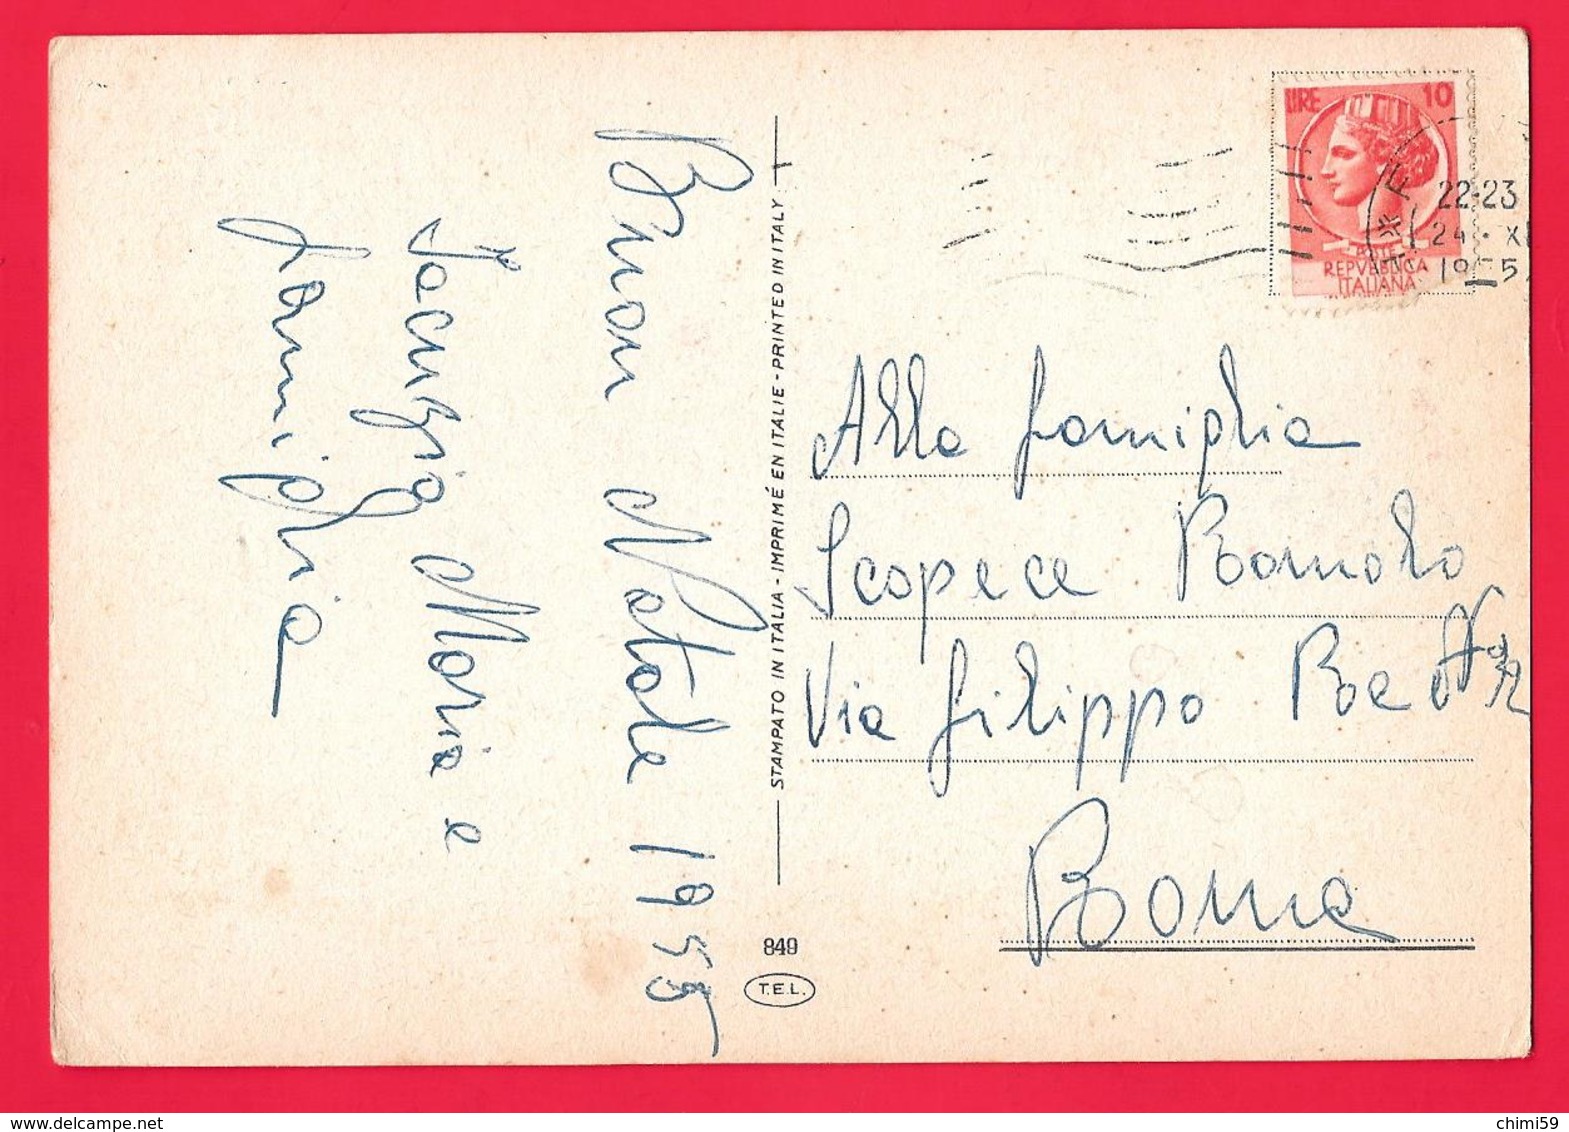 Buon Natale 1955
Maria e
famiglia
STAMPATO IN ITALIA - IMPRIMÉ EN ITALIE - PRINTED IN ITALY
849
T.E.L.
LIRE 10
POSTE
REPVBBLICA
ITALIANA
22-23
24 · X
19 5
Alla famiglia
Scopece Romolo
Via filippo
Roma
chimi59